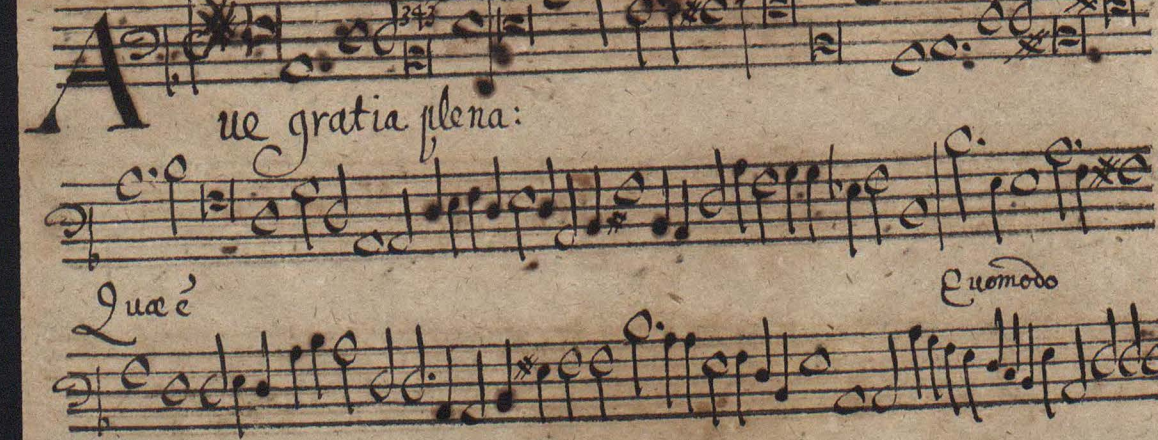 343
Aue gratia plena:
Quæ é Quomodo